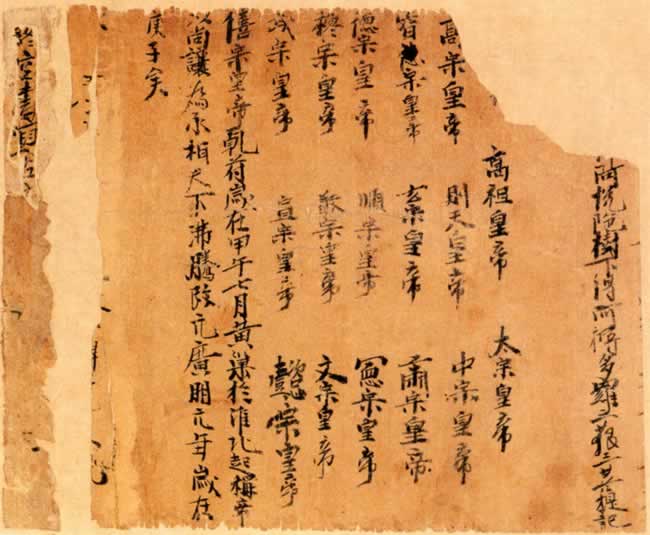 樹下得阿耨多羅三藐三菩提記
高祖皇帝 太宗皇帝
高宗皇帝 則天皇帝 中宗皇帝
睿宗皇帝 玄宗皇帝 肅宗皇帝
德宗皇帝 順宗皇帝 憲宗皇帝
穆宗皇帝 敬宗皇帝 文宗皇帝
武宗皇帝 宣宗皇帝 懿宗皇帝
僖宗皇帝乹符歲在甲午七月黃巢於淮北起稱帝
以尚讓為承相天下沸騰改元廣明元年歲在
庚子矣